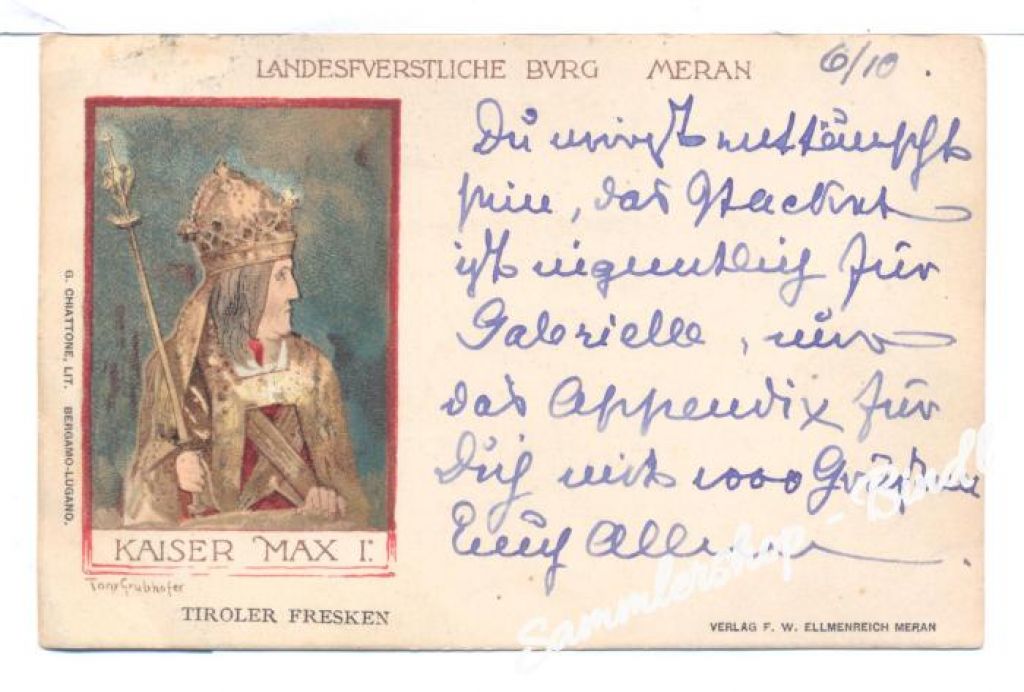 LANDESFVERSTLICHE BVRG MERAN
6/10.
Du wirst enttäuscht
sein, das
ist eigentlich für
Gabrielle, nur
das Appendix für
Dich mit 1000 Grüßen
Euch Allen
G. CHIATTONE, LIT. BERGAMO-LUGANO.
KAISER MAX I.
Tony Grubhofer
TIROLER FRESKEN
VERLAG F. W. ELLMENREICH MERAN
Sammlershop -